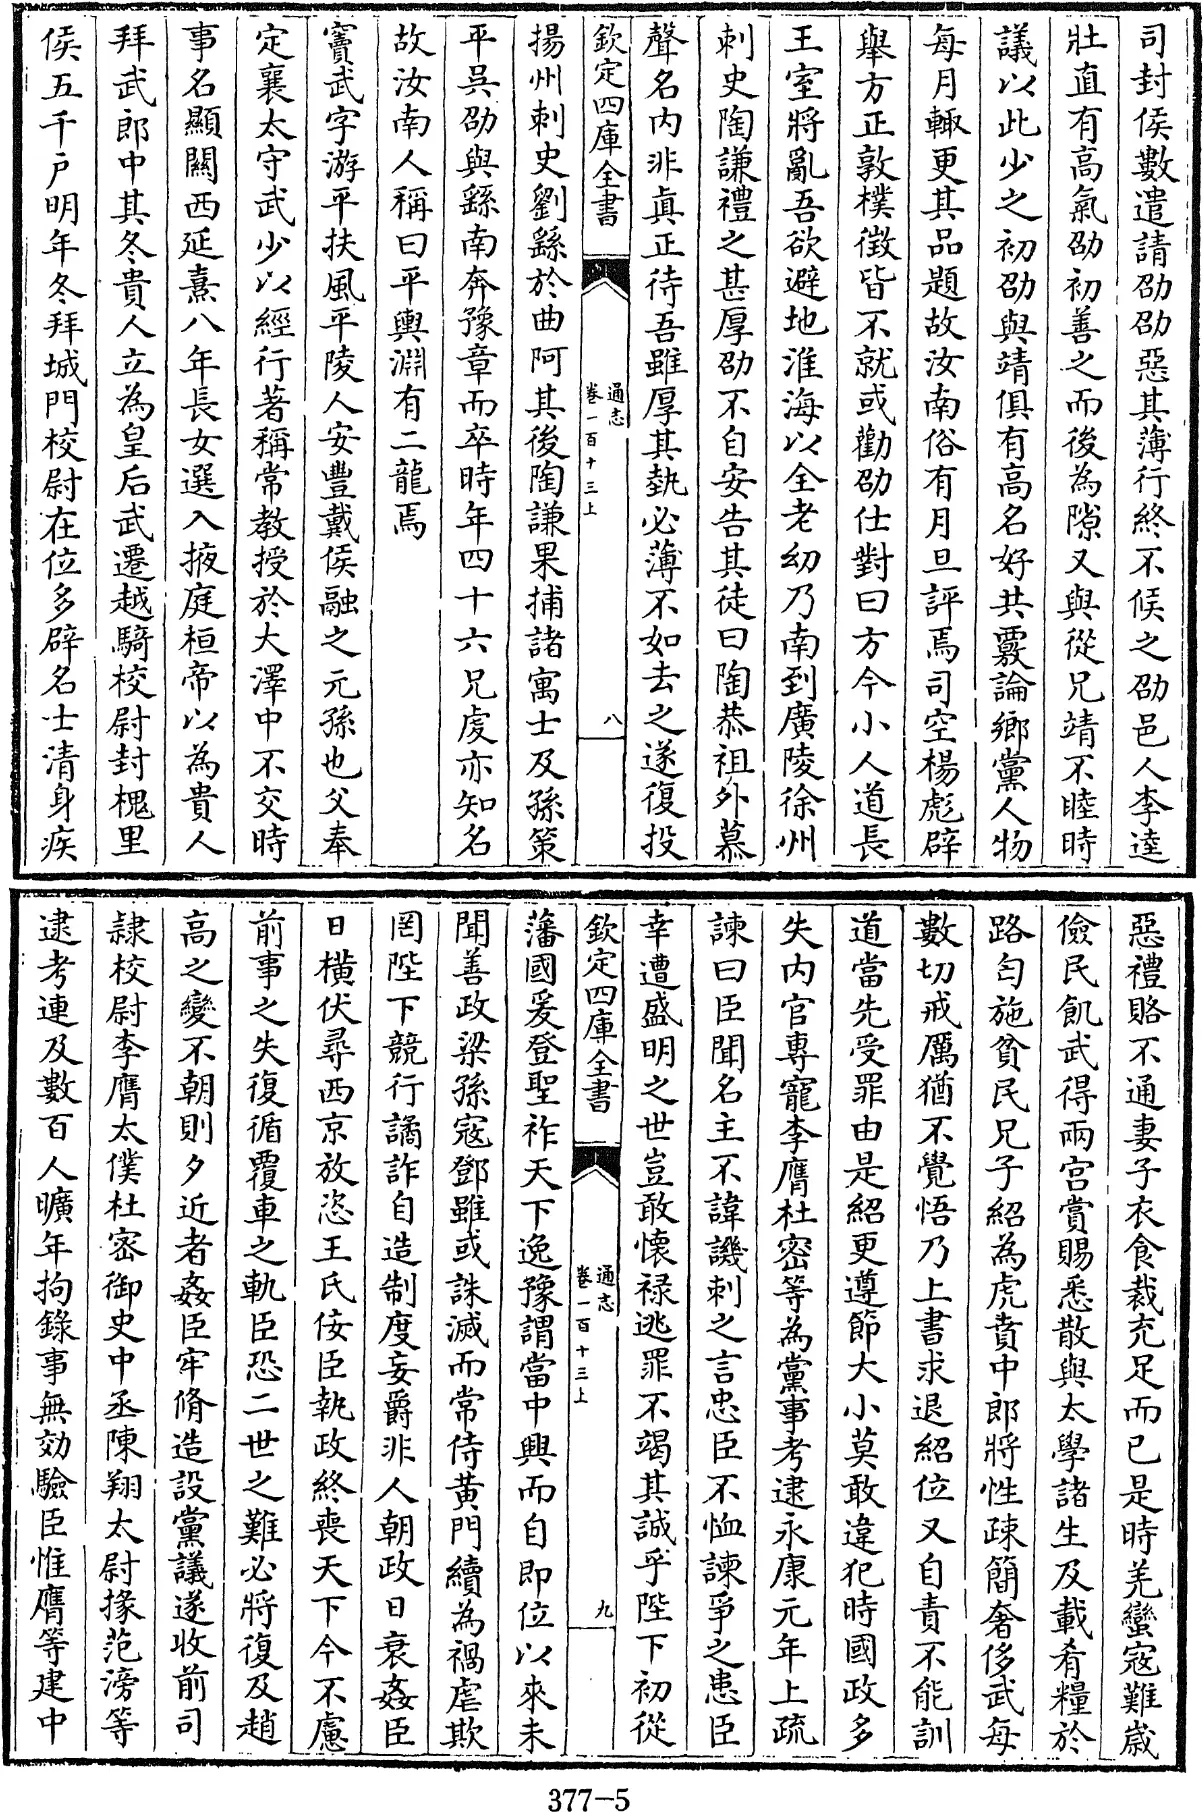 司封侯數遣請劭劭惡其薄行終不候之劭邑人李逵
壯直有高氣劭初善之而後為隙又與從兄靖不睦時
議以此少之初劭與靖俱有高名好共覈論鄉黨人物
每月輙更其品題故汝南俗有月旦評焉司空楊彪辟
舉方正敦樸徵皆不就或勸劭仕對曰方今小人道長
王室將亂吾欲避地淮海以全老幼乃南到廣陵徐州
刺史陶謙禮之甚厚劭不自安告其徒曰陶恭祖外慕
聲名內非真正待吾雖厚其埶必薄不如去之遂復投
欽定四庫全書
通志
卷一百十三上
八
揚州刺史劉繇於曲阿其後陶謙果捕諸寓士及孫策
平吳劭與繇南奔豫章而卒時年四十六兄虔亦知名
故汝南人稱曰平輿淵有二龍焉
竇武字游平扶風平陵人安豐戴侯融之元孫也父奉
定襄太守武少以經行著稱常教授於大澤中不交時
事名顯關西延熹八年長女選入掖庭桓帝以為貴人
拜武郎中其冬貴人立為皇后武遷越騎校尉封槐里
侯五千戶明年冬拜城門校尉在位多辟名士清身疾
惡禮賂不通妻子衣食裁充足而已是時羌蠻寇難歲
儉民飢武得兩宮賞賜悉散與太學諸生及載肴糧於
路匄施貧民兄子紹為虎賁中郎將性疎簡奢侈武每
數切戒厲猶不覺悟乃上書求退紹位又自責不能訓
道當先受罪由是紹更遵節大小莫敢違犯時國政多
失內官專寵李膺杜密等為黨事考逮永康元年上疏
諫曰臣聞名主不諱譏刺之言忠臣不恤諫爭之患臣
幸遭盛明之世豈敢懷祿逃罪不竭其誠乎陛下初從
欽定四庫全書
通志
卷一百十三上
九
藩國爰登聖祚天下逸豫謂當中興而自即位以來未
聞善政梁孫寇鄧雖或誅滅而常侍黃門續為禍虐欺
罔陛下競行譎詐自造制度妄爵非人朝政日衰姦臣
日橫伏尋西京放恣王氏佞臣執政終喪天下今不慮
前事之失復循覆車之軌臣恐二世之難必將復及趙
高之變不朝則夕近者姦臣牢脩造設黨議遂收前司
隸校尉李膺太僕杜密御史中丞陳翔太尉掾范滂等
逮考連及數百人曠年拘錄事無効驗臣惟膺等建中
377-5